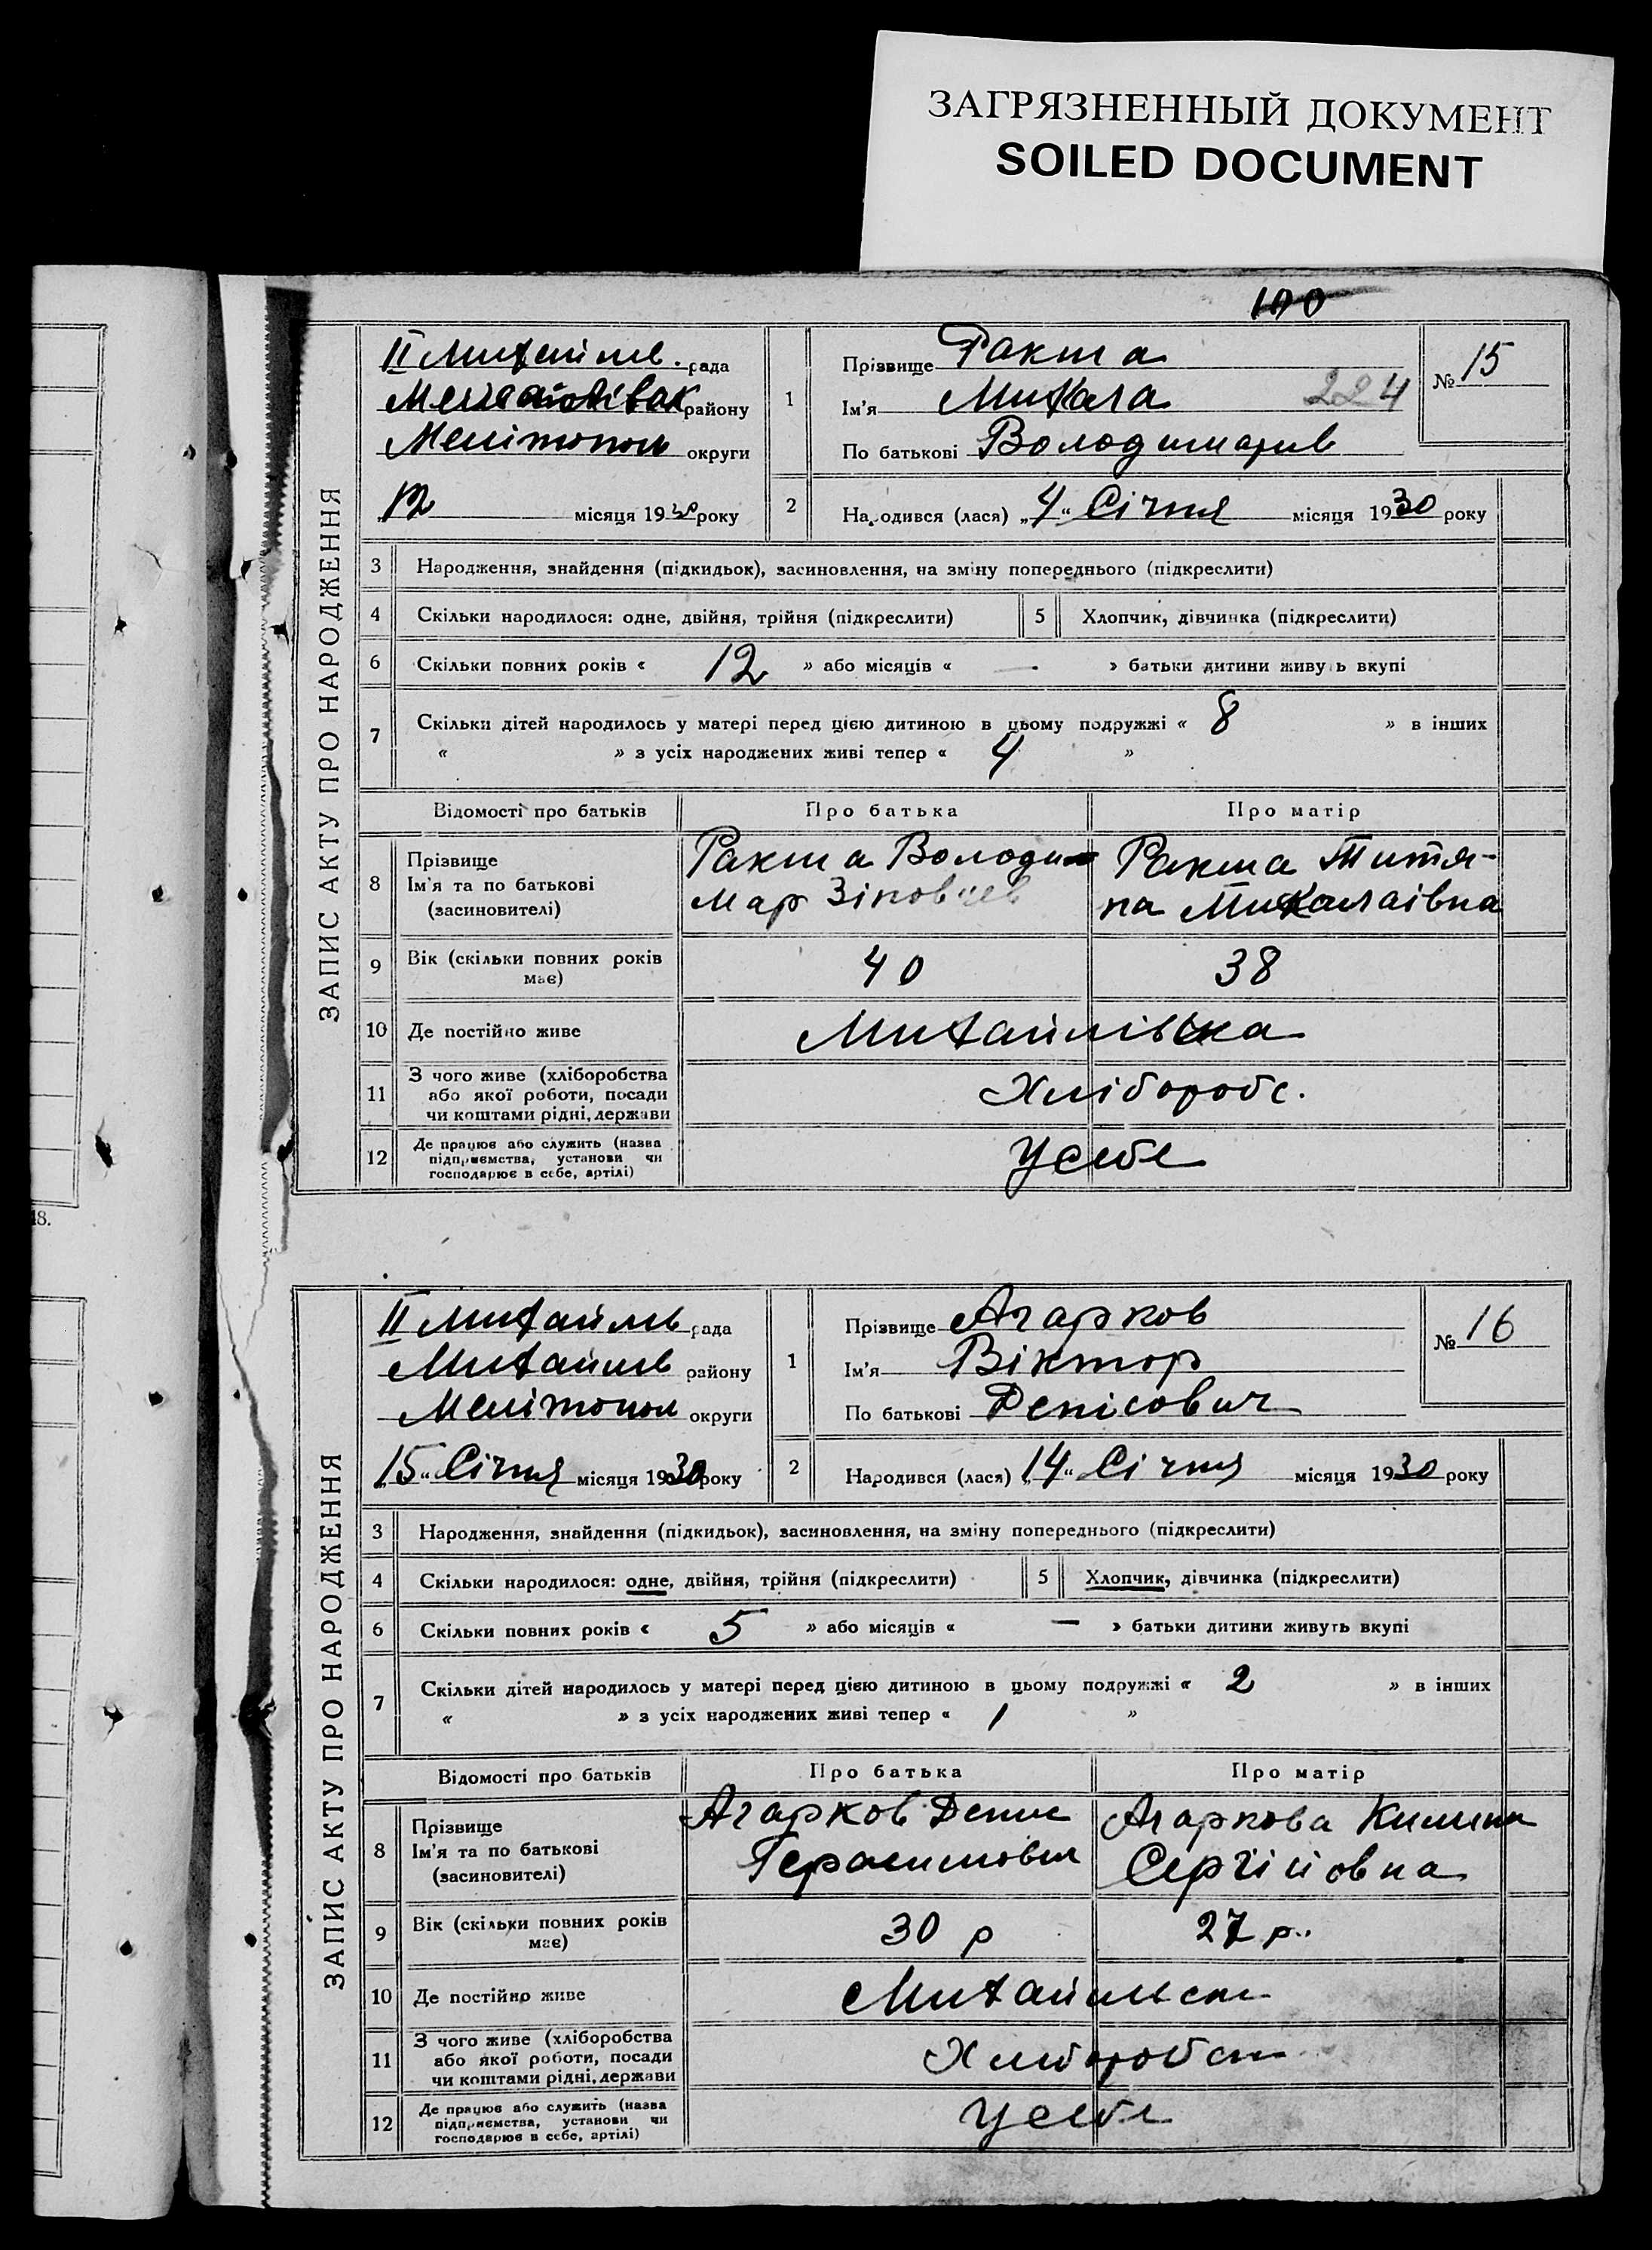 ЗАГРЯЗНЕННЫЙ ДОКУМЕНТ
SOILED DOCUMENT
ЗАПИС АКТУ ПРО НАРОДЖЕННЯ
II Михайлів. рада
району
Мелітополь округи
12 місяця 1930 року
1
Прізвище Ракша
Ім'я Микола 224
По батькові Володимирів
№ 15
2
Народився (лася) „4“ Січня місяця 1930 року
3 Народження, знайдення (підкидьок), засиновлення, на зміну попереднього (підкреслити)
4 Скільки народилося: одне, двійня, трійня (підкреслити) 5 Хлопчик, дівчинка (підкреслити)
6 Скільки повних років « 12 » або місяців « — » батьки дитини живуть вкупі
7 Скільки дітей народилось у матері перед цією дитиною в цьому подружжі « 8 » в інших
« » з усіх народжених живі тепер « 4 »
Відомості про батьків Про батька Про матір
8 Прізвище
Ім'я та по батькові
(засиновителі)
Ракша Володи
мар
Ракша Титя-
на Миколаівна
9 Вік (скільки повних років має) 40 38
10 Де постійно живе Михайлівка
11 З чого живе (хліборобства
або якої роботи, посади
чи коштами рідні, держави
Хлібороб с.
12 Де працює або служить (назва
підприємства, установи чи
господарює в себе, артілі)
У себе
18.
ЗАПИС АКТУ ПРО НАРОДЖЕННЯ
II Михайлів рада
Михайлів району
Мелітопол округи
„15“ Січня місяця 1930 року
1
Прізвище Агарков
Ім'я Віктор
По батькові Денісович
№ 16
2
Народився (лася) „14“ Січня місяця 1930 року
3 Народження, знайдення (підкидьок), засиновлення, на зміну попереднього (підкреслити)
4 Скільки народилося: одне, двійня, трійня (підкреслити) 5 Хлопчик, дівчинка (підкреслити)
6 Скільки повних років « 5 » або місяців « — » батьки дитини живуть вкупі
7 Скільки дітей народилось у матері перед цією дитиною в цьому подружжі « 2 » в інших
« » з усіх народжених живі тепер « 1 »
Відомості про батьків Про батька Про матір
8 Прізвище
Ім'я та по батькові
(засиновителі)
Агарков Денис
Герасимович
Агаркова
Сергійовна
9 Вік (скільки повних років має) 30 р 27 р.
10 Де постійно живе
11 З чого живе (хліборобства
або якої роботи, посади
чи коштами рідні, держави
12 Де працює або служить (назва
підприємства, установи чи
господарює в себе, артілі)
У себе